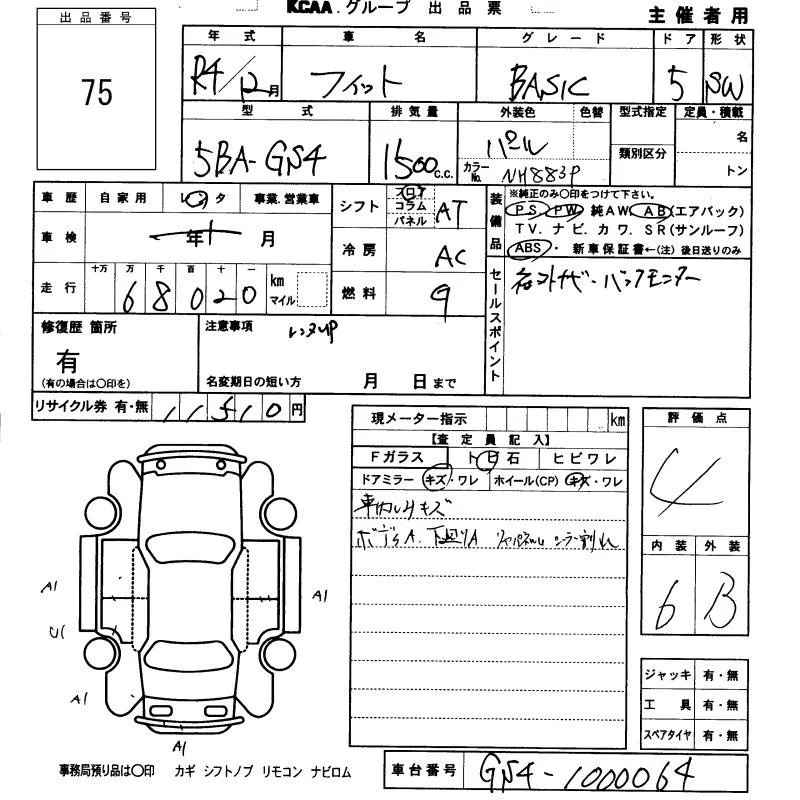 KCAA.グループ 出品票
主催者用
出品番号
75
年式 車名 グレード ドア 形状
R4/12月 フィット BASIC 5 SW
型式 排気量 外装色 色替 型式指定 定員・積載
5BA-GS4 1500c.c. パール カラーNo. NH883P 類別区分 名 トン
車歴 自家用 レンタ 事業.営業車
車検 年 月
走行 十万 万 千 百 十 一 km マイル
68020
シフト フロア コラム パネル AT
冷房 AC
燃料
装備品
※純正のみ〇印をつけて下さい。
PS PW 純AW. AB(エアバック)
TV. ナビ. カワ. SR(サンルーフ)
ABS・ 新車保証書←(注) 後日送りのみ
セールスポイント
ナビ・バックモニター
修復歴 箇所
有
(有の場合は〇印を)
注意事項 レンタUP
名変期日の短い方 月 日まで
リサイクル券 有・無 11510円
現メーター指示 km
【査定員記入】
Fガラス ト日石 ヒビワレ
ドアミラー キズ・ワレ ホイール(CP) キズ・ワレ
車内シミキズ
ボディA. 下廻りA シーラー割れ
評価点
4
内装 外装
6 B
ジャッキ 有・無
工具 有・無
スペアタイヤ 有・無
A1
A1
U1
A1
A1
A1
事務局預り品は〇印 カギ シフトノブ リモコン ナビロム
車台番号 GS4-1000064